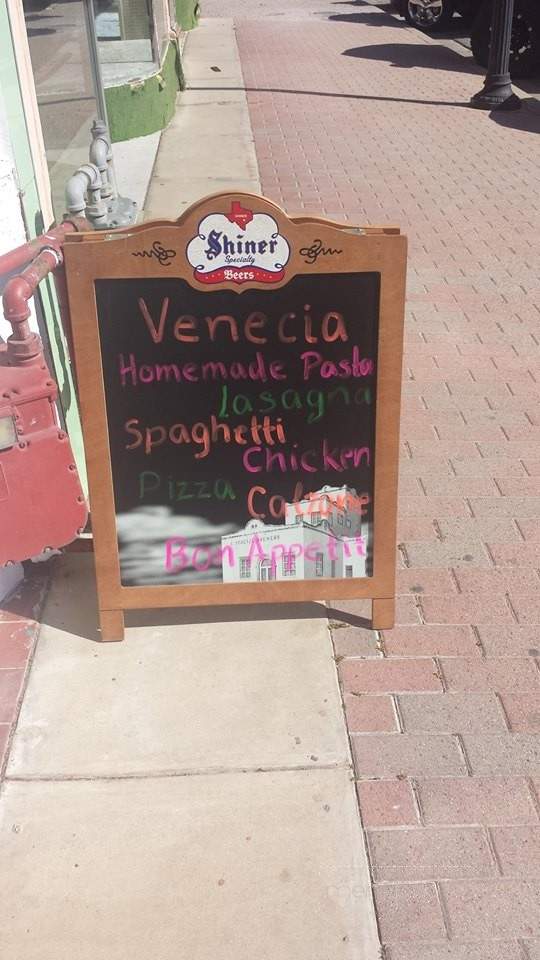 Shiner
Specialty
Beers
Venecia
Homemade Pasta
Lasagna
Spaghetti
Chicken
Pizza
Calzone
Bon Appetit